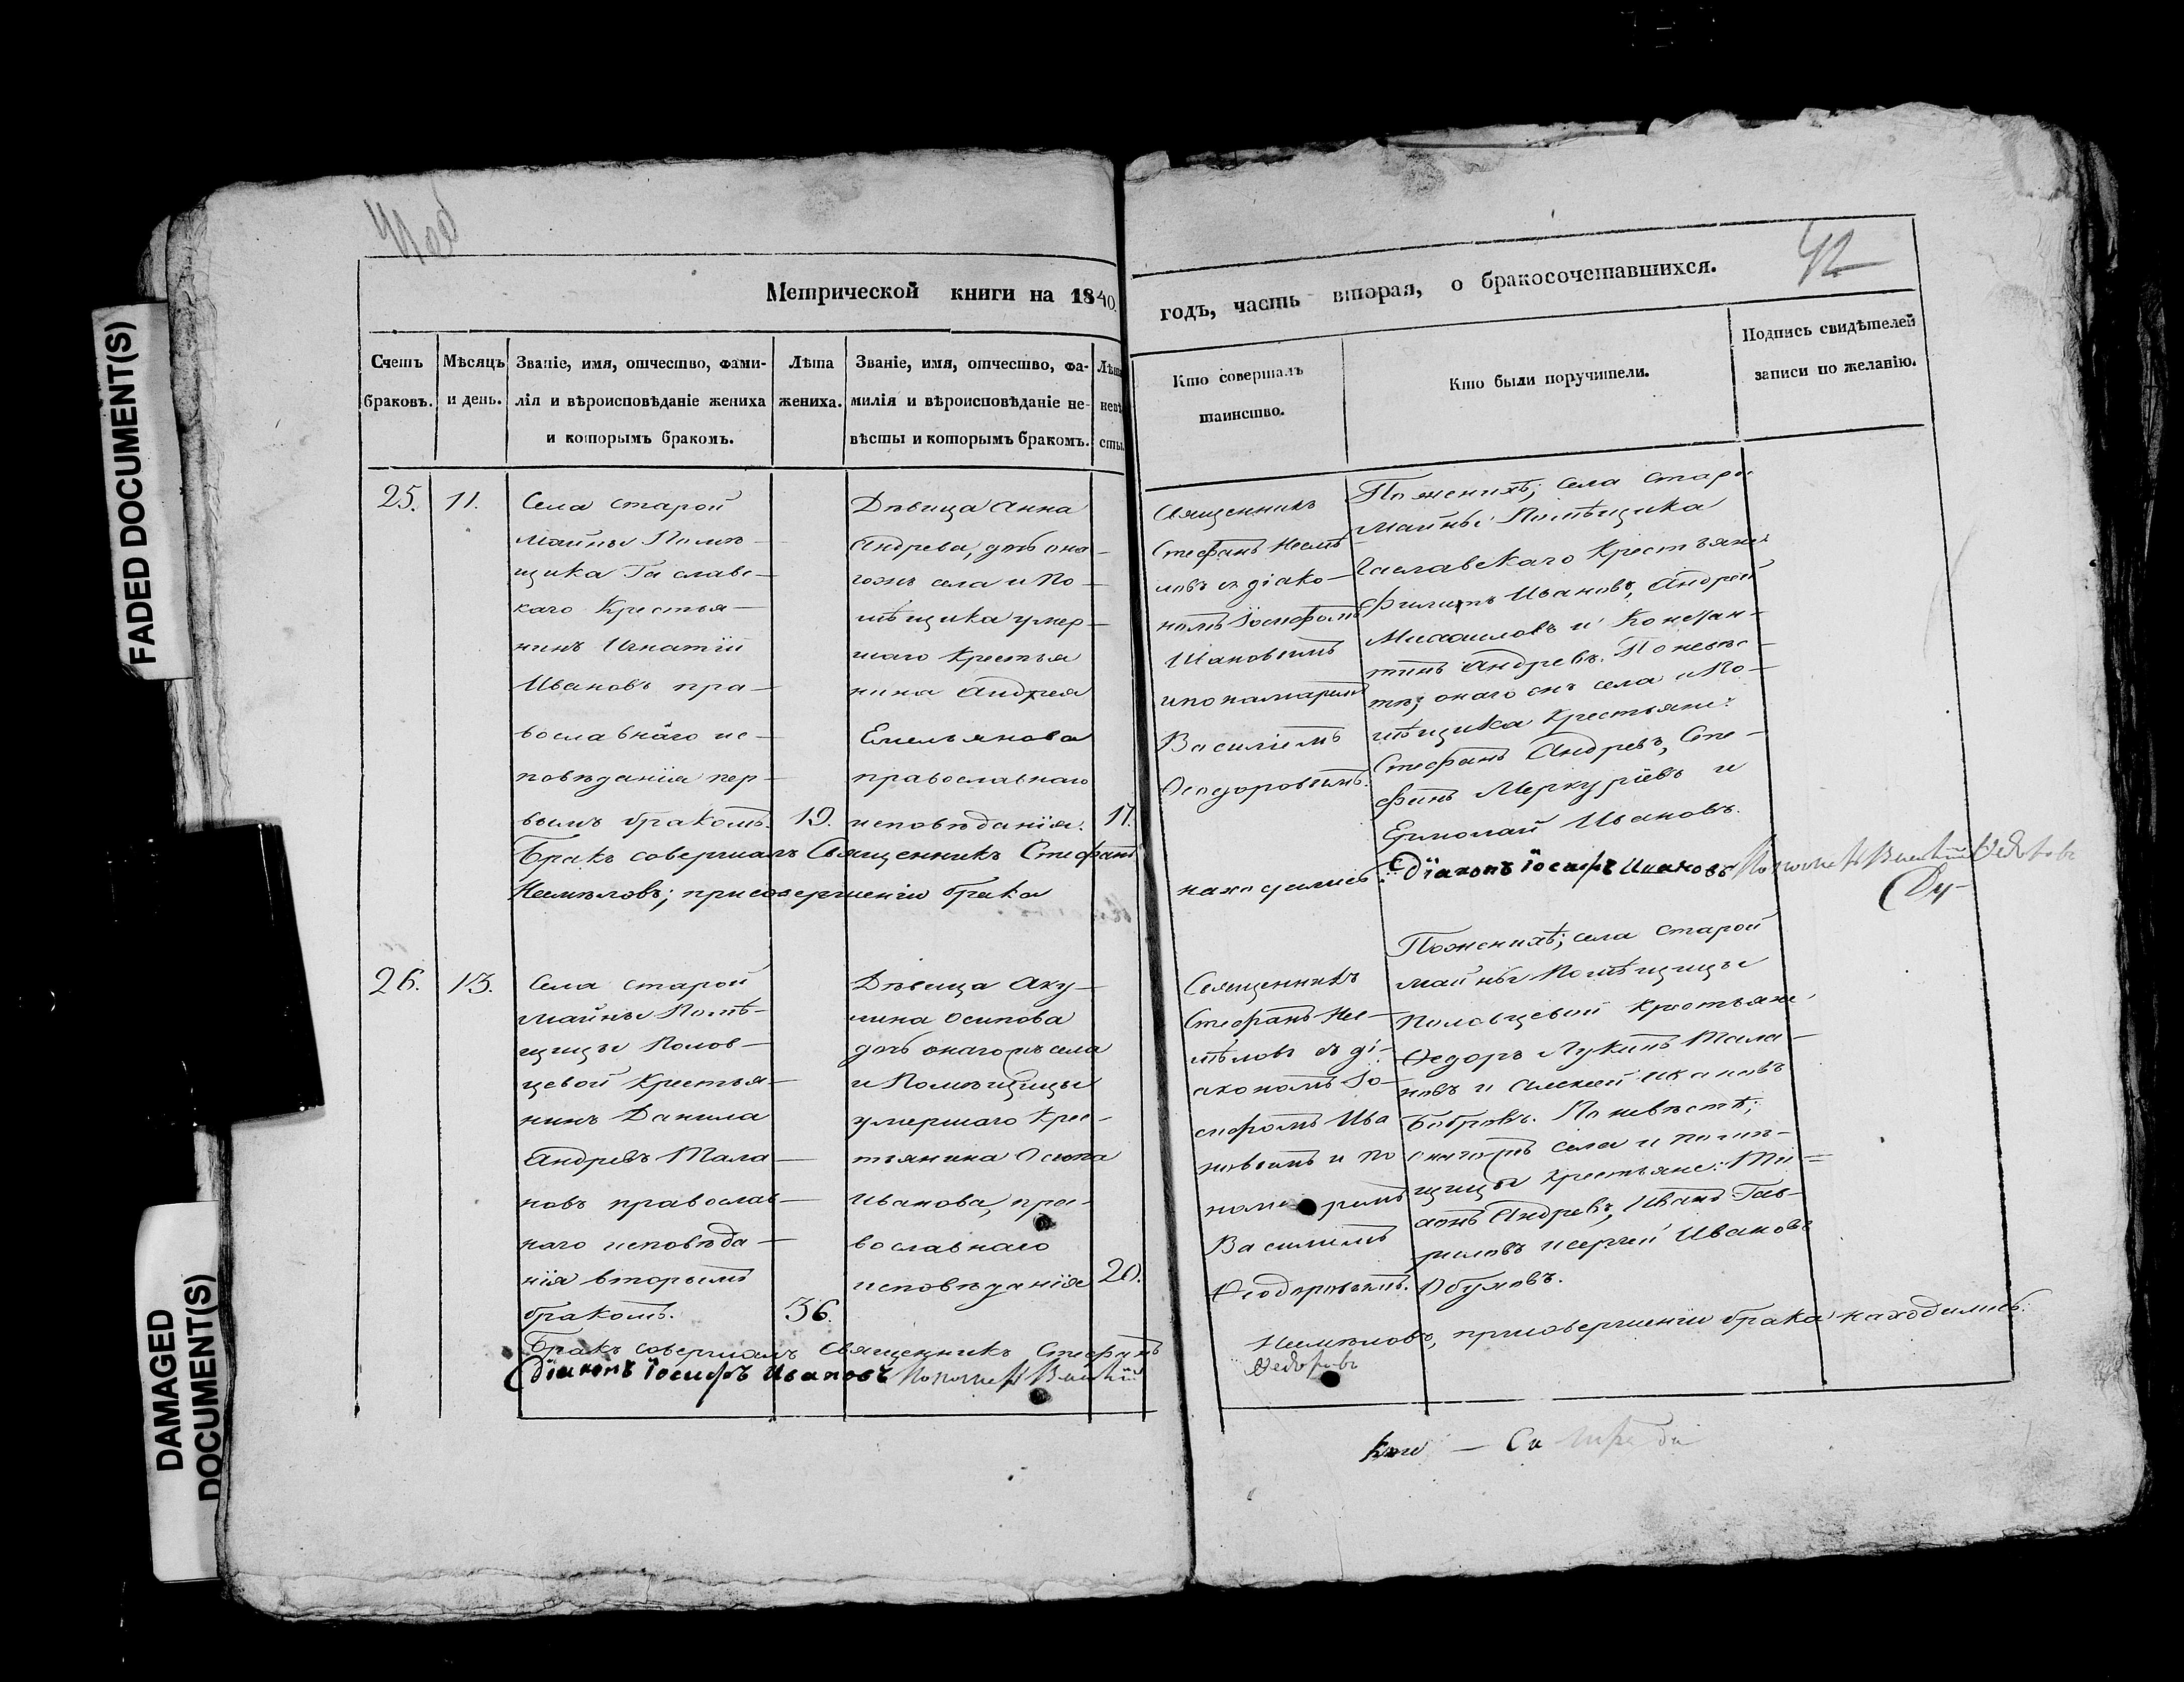 FADED DOCUMENT(S)
DAMAGED
DOCUMENT(S)
42
Метрической книги на 1840.
годъ, часть вторая, о бракосочетавшихся.
Счетъ
браковъ.
Мѣсяцъ
и день.
Званіе, имя, отчество, фами-
лія и вѣроисповѣданіе жениха
и которымъ бракомъ.
Лѣта
жениха.
Званіе, имя, отчество, фа-
милія и вѣроисповѣданіе не-
вѣсты и которымъ бракомъ.
Лѣта
невѣ
сты.
Кто совершалъ
таинство.
Кто были поручители.
Подпись свидѣтелей
записи по желанію.
25.
11.
Села старой
майны Помѣ-
щика
каго Крестья-
нинъ Игнатій
Ивановъ пра-
вославнаго ис-
повѣданія пер-
вымъ бракомъ.
19.
Дѣвица Анна
Андрева, дочь она-
гожъ села и По-
мѣщика умер-
шаго Крестья
нина Андрея
Емельянова
православнаго
исповѣданія.
17.
Священникъ
Стефанъ Несмѣ-
ловъ съ діако-
номъ Іосифомъ
Ивановымъ
и пономаремъ
Василіемъ
Ѳеодоровымъ.
По женихѣ; села старой
майны Помѣщика
Крестьяне:
Филиппъ Ивановъ, Андрей
Михаиловъ и Констан-
тинъ Андревъ. По невѣс-
тѣ; онаго жъ села и По-
мѣщика Крестьяне:
Стефанъ Андревъ, Сте-
фанъ Меркуріевъ и
Ермолай Ивановъ.
Бракъ совершалъ Священникъ Стефанъ
Несмѣловъ; при совершеніи брака
находились: Діаконъ Іосифъ Ивановъ Пономарь Василій Ѳедоровъ
26.
13.
Села старой
Майны Помѣ-
щицы Полов-
цевой Крестья-
нинъ Данила
Андревъ Мала-
новъ православ-
наго исповѣда-
нія вторымъ
бракомъ.
36.
Дѣвица Аку-
лина Осипова
дочь онагожъ села
и Помѣщицы
умершаго Крес-
тьянина Осипа
Иванова, пра-
вославнаго
исповѣданія
20.
Священникъ
Стефанъ Нес-
мѣловъ съ ді-
акономъ Іо-
сифомъ Ива
новымъ и по
номаремъ
Василіемъ
Ѳеодоровымъ.
По женихѣ; села старой
майны Помѣщицы
Половцевой Крестьяне:
Ѳедоръ Лукинъ Мала-
новъ и Алексей Ивановъ
Бобровъ. По невѣстѣ;
онагожъ села и помѣ-
щицы Крестьяне: Ти-
хонъ Андревъ, Иванъ Гав-
риловъ и Сергей Ивановъ
Обуховъ.
Бракъ совершалъ Священникъ Стефанъ
Несмѣловъ, при совершеніи брака находились:
Діаконъ Іосифъ Ивановъ Пономарь Василій
Ѳедоровъ